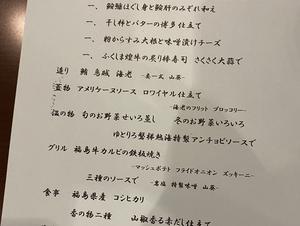 一、鮟鱇ほぐし身と鮟肝のみぞれ和え
一、干し柿とバターの博多仕立て
一、粉からすみ大根と味噌漬けチーズ
一、ふくしま煌牛の炙り棒寿司 さくさく大蒜で
造り 鮪 烏賊 海老 ―妻一式 山葵―
蓋物 アメリケーヌソース ロワイヤル仕立て
―海老のフリット ブロッコリー―
温の物 旬のお野菜せいろ蒸し 冬のお野菜いろいろ
ゆとりろ磐梯熱海特製アンチョビソースで
グリル 福島牛カルビの鉄板焼き
―マッシュポテト フライドオニオン ズッキーニ―
三種のソースで ―藻塩 特製味噌 山葵―
食事 福島県産 コシヒカリ
香の物二種 山椒香る赤だし仕立て